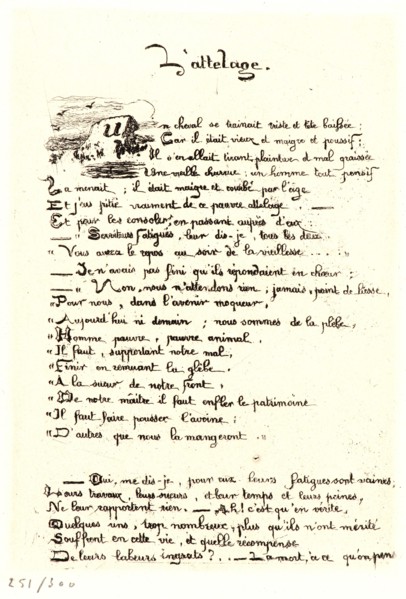 L'attelage.
un cheval se trainait triste et tête baissée ;
Car il était vieux et maigre et poussif ;
Il s'en allait tirant, plaintive et mal graissée
Une vieille charrue : un homme tout pensif
La menait ; il était maigre et courbé par l'âge
Et j'eus pitié vraiment de ce pauvre attelage
Et pour les consoler, en passant auprès d'eux :
— Serviteurs fatigués, leur dis-je, tous les deux
" Vous aurez le repos au soir de la vieillesse . . . . "
— Je n'avais pas fini qu'ils répondaient en chœur ;
— " Non, nous n'attendons rien ; jamais, point de liesse,
" Pour nous, dans l'avenir moqueur.
" Aujourd'hui ni demain ; nous sommes de la plèbe,
" Homme pauvre, pauvre animal,
" Il faut, supportant notre mal,
" Finir en remuant la glèbe.
" A la sueur de notre front,
" De notre maître il faut enfler le patrimoine
" Il faut faire pousser l'avoine ;
" D'autres que nous la mangeront . "
— Oui, me dis-je, pour eux leurs fatigues sont vaines ;
Leurs travaux, leurs sueurs, et leur temps et leurs peines,
Ne leur rapportent rien. — Ah ! c'est qu'en vérité,
Quelques uns, trop nombreux, plus qu'ils n'ont mérité
Souffrent en cette vie, et quelle récompense
De leurs labeurs ingrats ? . . — La mort, à ce qu'on pen
251/300